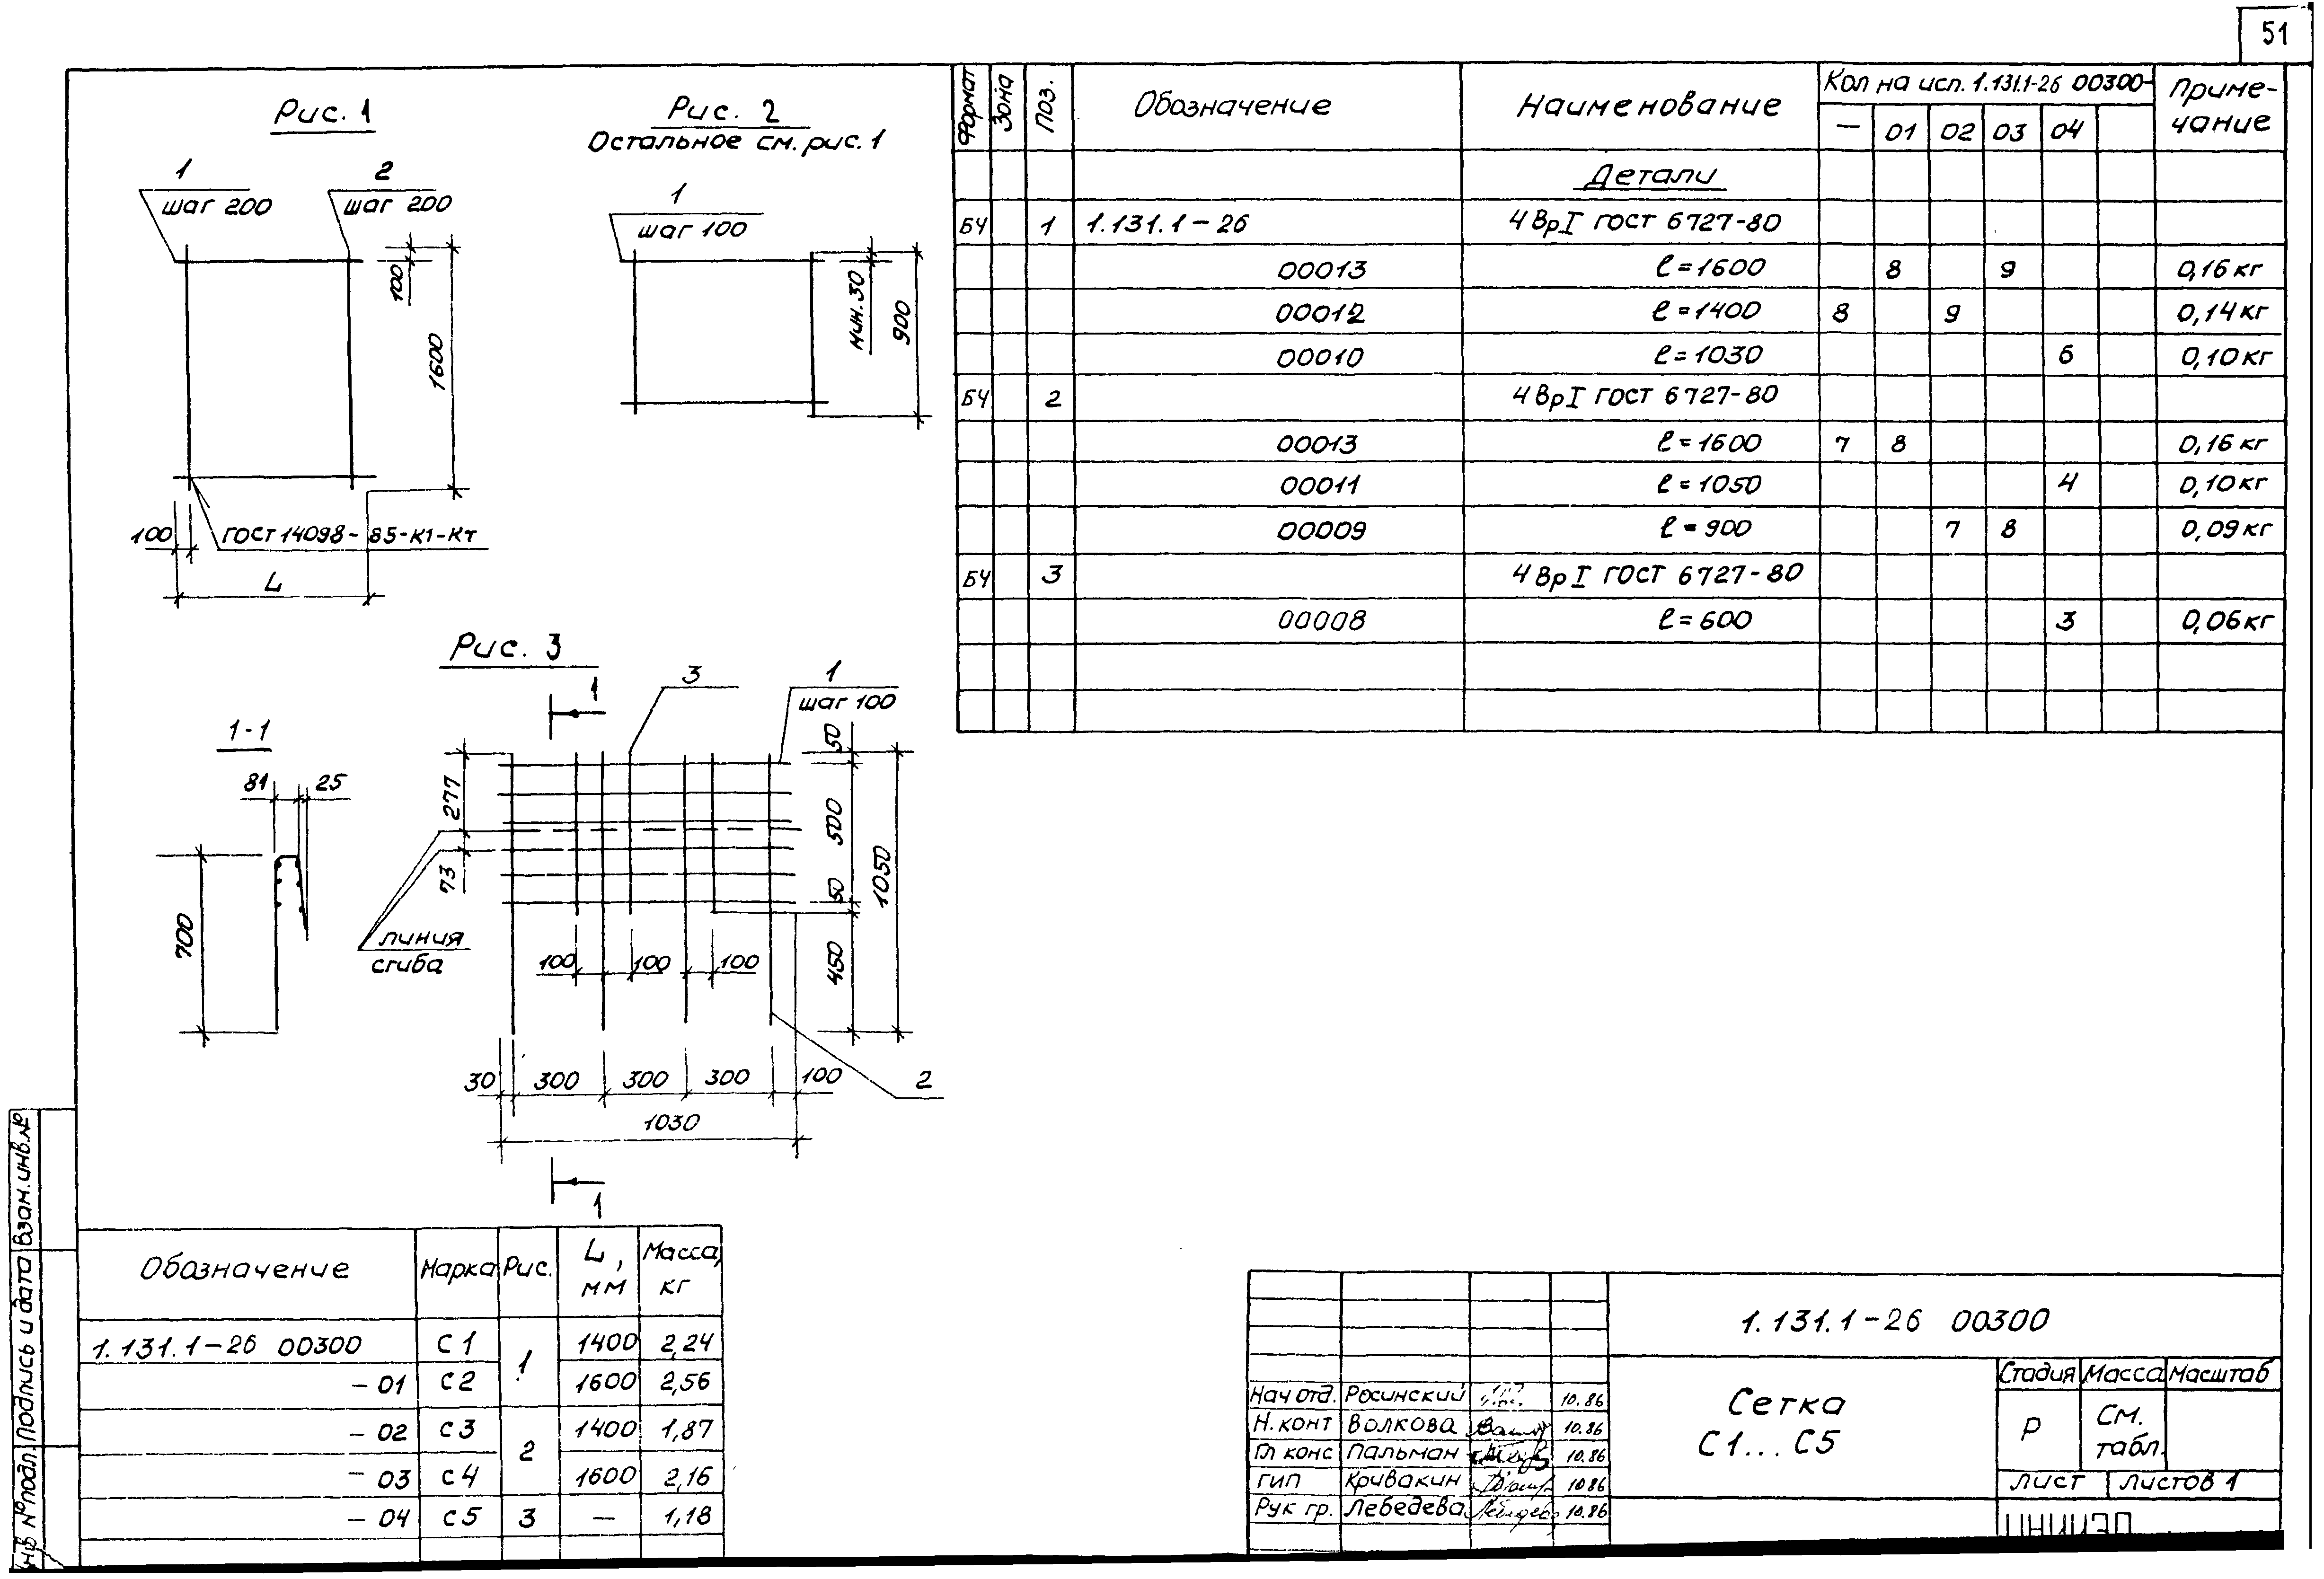 51
Рис. 1
1
шаг 200
2
шаг 200
100
1600
100
ГОСТ 14098-85-К1-Кт
L
Рис. 2
Остальное см. рис. 1
1
шаг 100
мин. 30
900
Рис. 3
1
3
1
шаг 100
50
277
500
73
50
1050
450
линия
сгиба
100
100
100
30
300
300
300
100
2
1030
1
1-1
81
25
700
Формат
Зона
Поз.
Обозначение
Наименование
Кол на исп. 1.131.1-26 00300-
Приме-
чание
— 01 02 03 04
Детали
БЧ 1 1.131.1-26 4ВрI ГОСТ 6727-80
00013 ℓ=1600 8 9 0,16 кг
00012 ℓ=1400 8 9 0,14 кг
00010 ℓ=1030 6 0,10 кг
БЧ 2 4ВрI ГОСТ 6727-80
00013 ℓ=1600 7 8 0,16 кг
00011 ℓ=1050 4 0,10 кг
00009 ℓ=900 7 8 0,09 кг
БЧ 3 4ВрI ГОСТ 6727-80
00008 ℓ=600 3 0,06 кг
Обозначение Марка Рис. L, мм Масса, кг
1.131.1-26 00300 С1 1 1400 2,24
-01 С2 1600 2,56
-02 С3 2 1400 1,87
-03 С4 1600 2,16
-04 С5 3 — 1,18
1.131.1-26 00300
Сетка
С1...С5
Стадия Масса Масштаб
Р См. табл.
лист листов 1
Нач отд. Росинский 10.86
Н. конт Волкова 10.86
Гл конс Пальман 10.86
ГИП Кривакин 10 86
Рук гр. Лебедева 10.86
Взам. инв. №
Подпись и дата
Инв № подл.